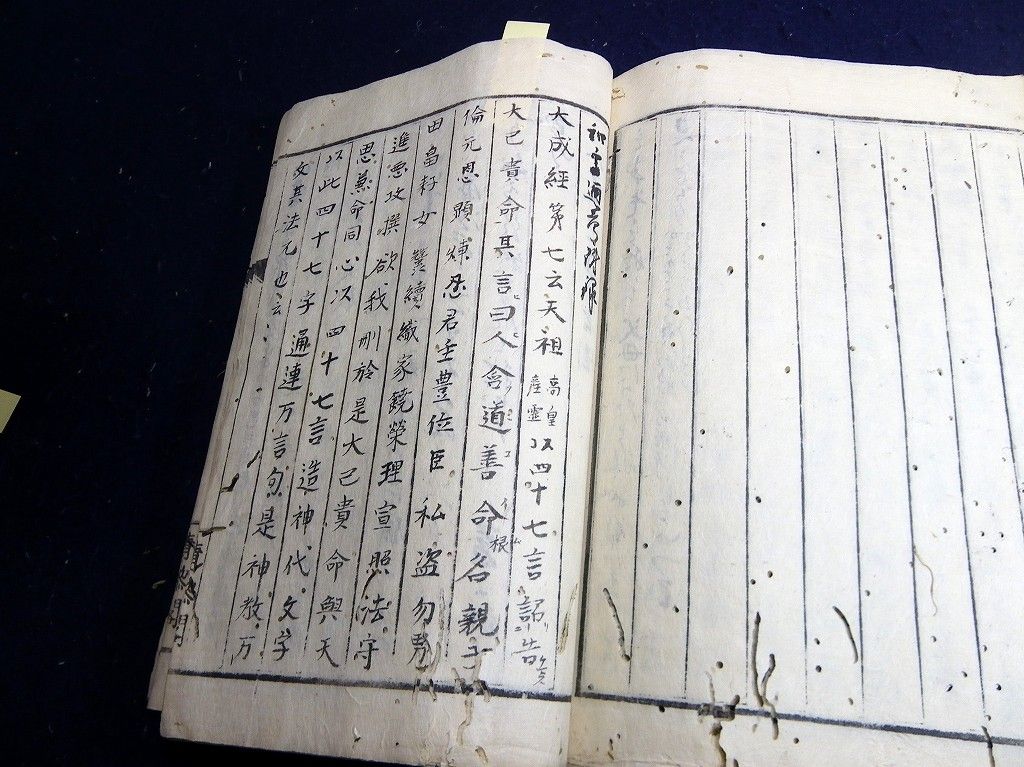 大成經第七云天祖高皇産霊以四十七言詔告
大己貴命其言曰人含道善命名親子
倫元恩顕煉忍君主豊位臣私盗勿男
田畠耘女續織家饒榮理宜照法守
進悪攻撰欲我刪於是大己貴命與天
思兼命同心以四十七言造神代文字
以此四十七字通連万言句是神教万
文其法元也云